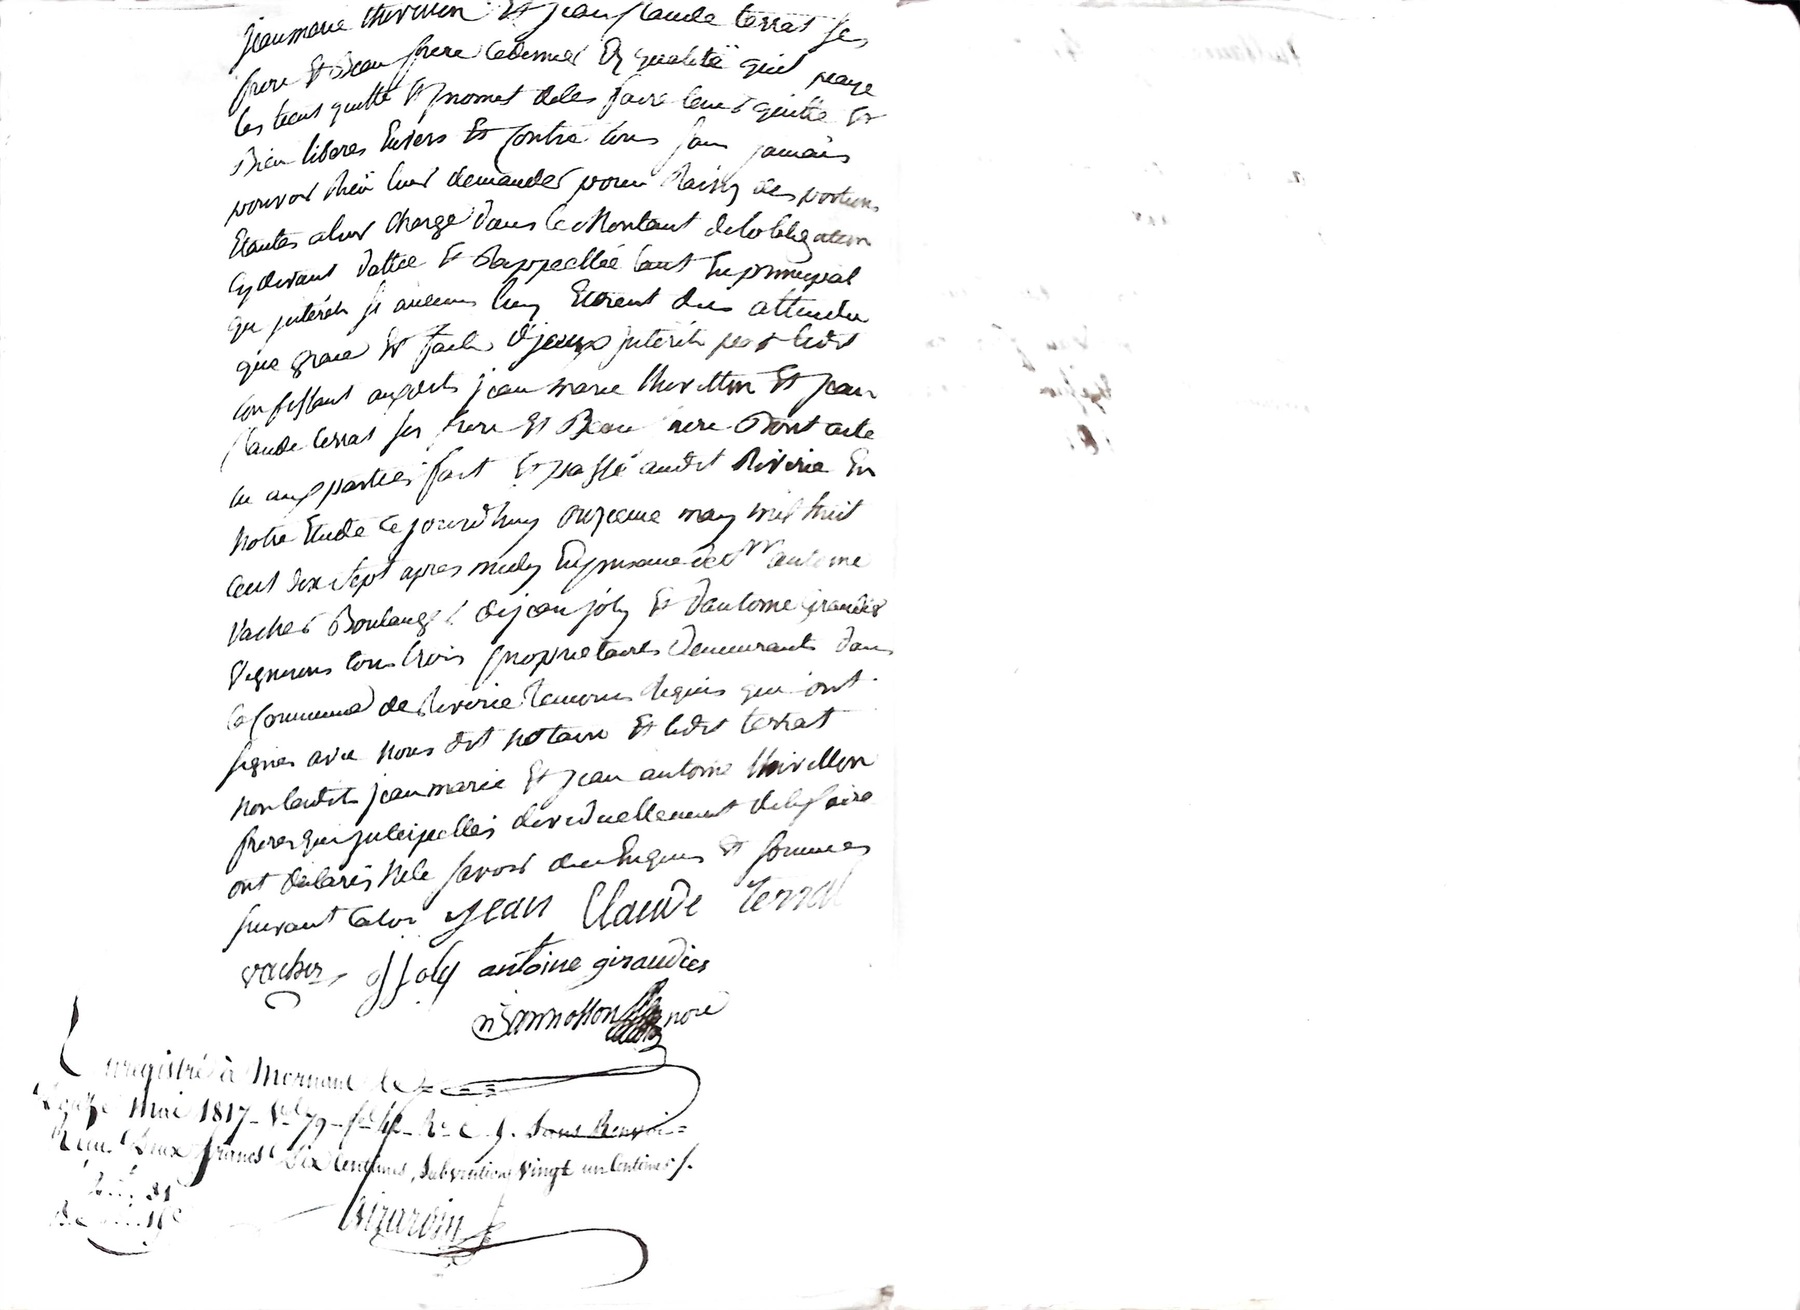 jean marie thivillon Et jean Claude terrat ses
frere Et Beau frere Ce dernier En qualité quil
les tient quitte Et promet deles faire tenir quitte Et
Bien liberes Envers Et Contre tous sans jamais
pouvoir Rien leur demander pour Raison des portions
Etantes a leur Charge dans le Montant de lobligation
Cy devant dattée Et Rappellée tant En principal
qu jnterêts si aucuns luy Etoient dus attendu
que grace Est faite d'jceux jnterêts par ledit
Confessant auxdits jean marie thivillon Et jean
Claude terrat ses frere Et Beau frere Dont acte
lu aux parties fait Et passé audit Riverie En
notre Etude Cejourdhuy onzieme may mil huit
Cent dix sept apres midy En presence de srs antoine
Vacher Boulanger de jean joly Et d'antoine Giraudier
Vignerons tous trois proprietaires demeurants dans
la Commune de Riverie temoins Requis qui ont
signés avec nous dit notaire Et ledit terrat
non lesdits jean marie Et jean antoine thivillon
freres qui jnterpellés dividuellement dele faire
ont declarés Nele savoir de ce Enquis Et sommés
suivant laloi jean Claude terrat
vacher joly antoine giraudier
nore
Enregistré à Mornant le
douze Mai 1817 Vol 79 Sans Renvoi
Reçu Deux francs dix Centimes, Subvention vingt un Centimes
Girardin